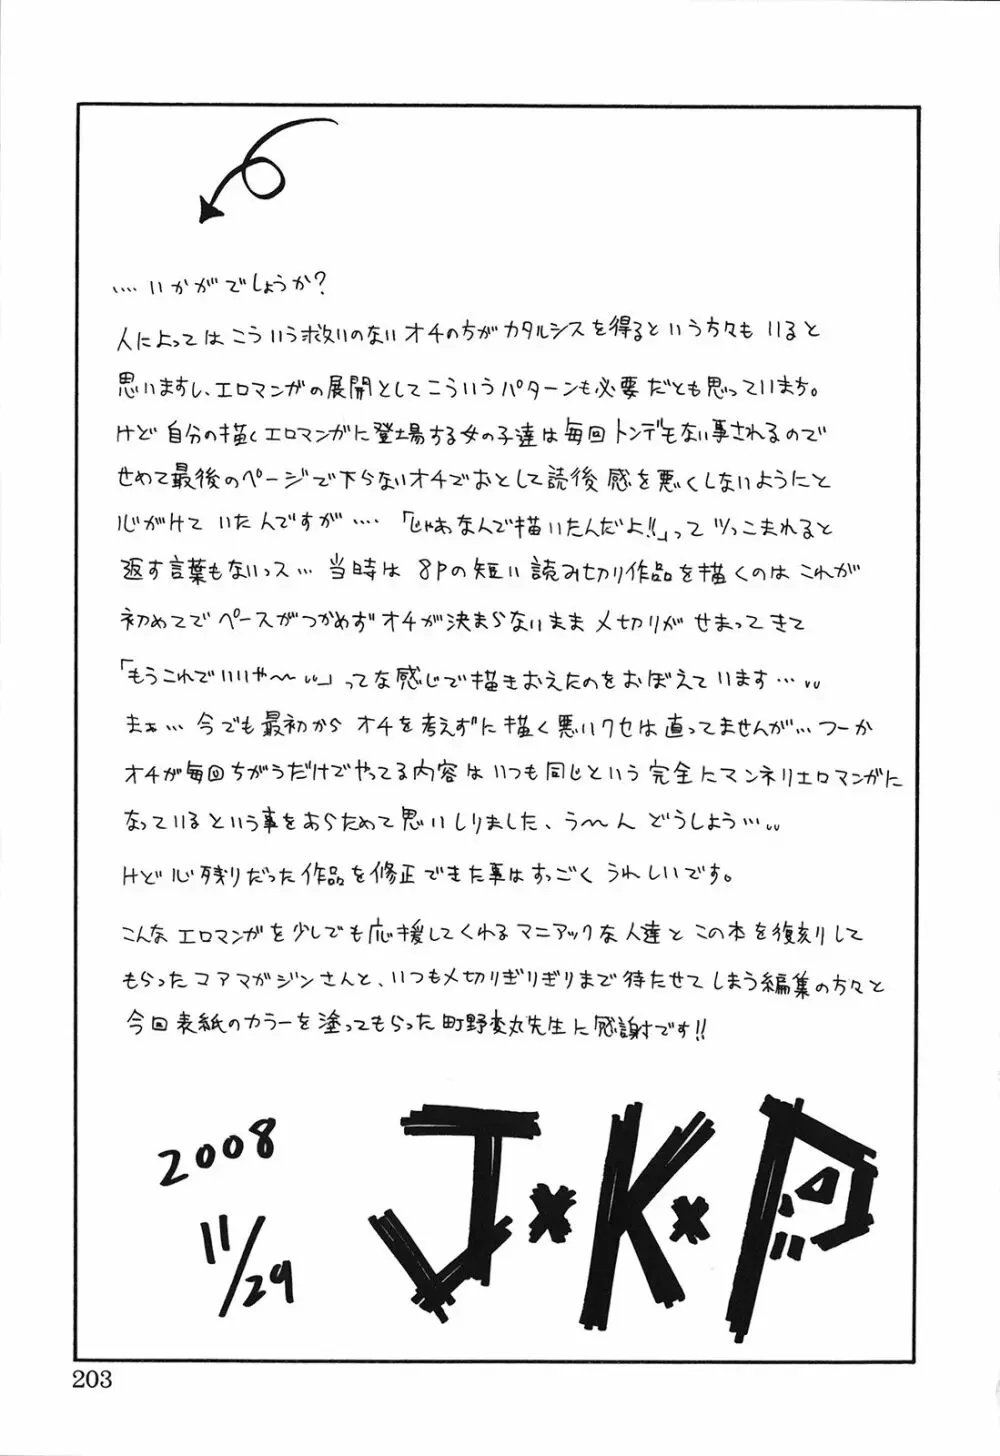 ....いかがでしょうか?
人によってはこういう救いのないオチの方がカタルシスを得るという方々もいると
思いますし、エロマンガの展開としてこういうパターンも必要だとも思っていまち。
けど自分の描くエロマンガに登場する女の子達は毎回トンデもない事されるので
せめて最後のページで下らないオチでおとして読後感を悪くしないようにと
心がけていたんですが….「じゃあなんで描いたんだよ!!」ってツっこまれると
返す言葉もないっス…当時は8Pの短い読み切り作品を描くのはこれが
初めてでペースがつかめずオチが決まらないままメ切りがせまってきて
「もうこれでいいや〜」ってな感じで描きおえたのをおぼえています…
まぁ…今でも最初からオチを考えずに描く悪いクセは直ってませんが…つーか
オチが毎回ちがうだけでやってる内容はいつも同じという完全にマンネリエロマンガに
なっているという事をあらためて思いしりました、う〜んどうしよう…
けど心残りだった作品を修正できた事はすっごくうれしいです。
こんなエロマンガを少しでも応援してくれるマニアックな人達とこの本を復刻して
もらったコアマガジンさんと、いつもメ切りぎりぎりまで待たせてしまう編集の方々と
今回表紙のカラーを塗ってもらった町野変丸先生に感謝です!!
2008
11/29
J×K×P
203